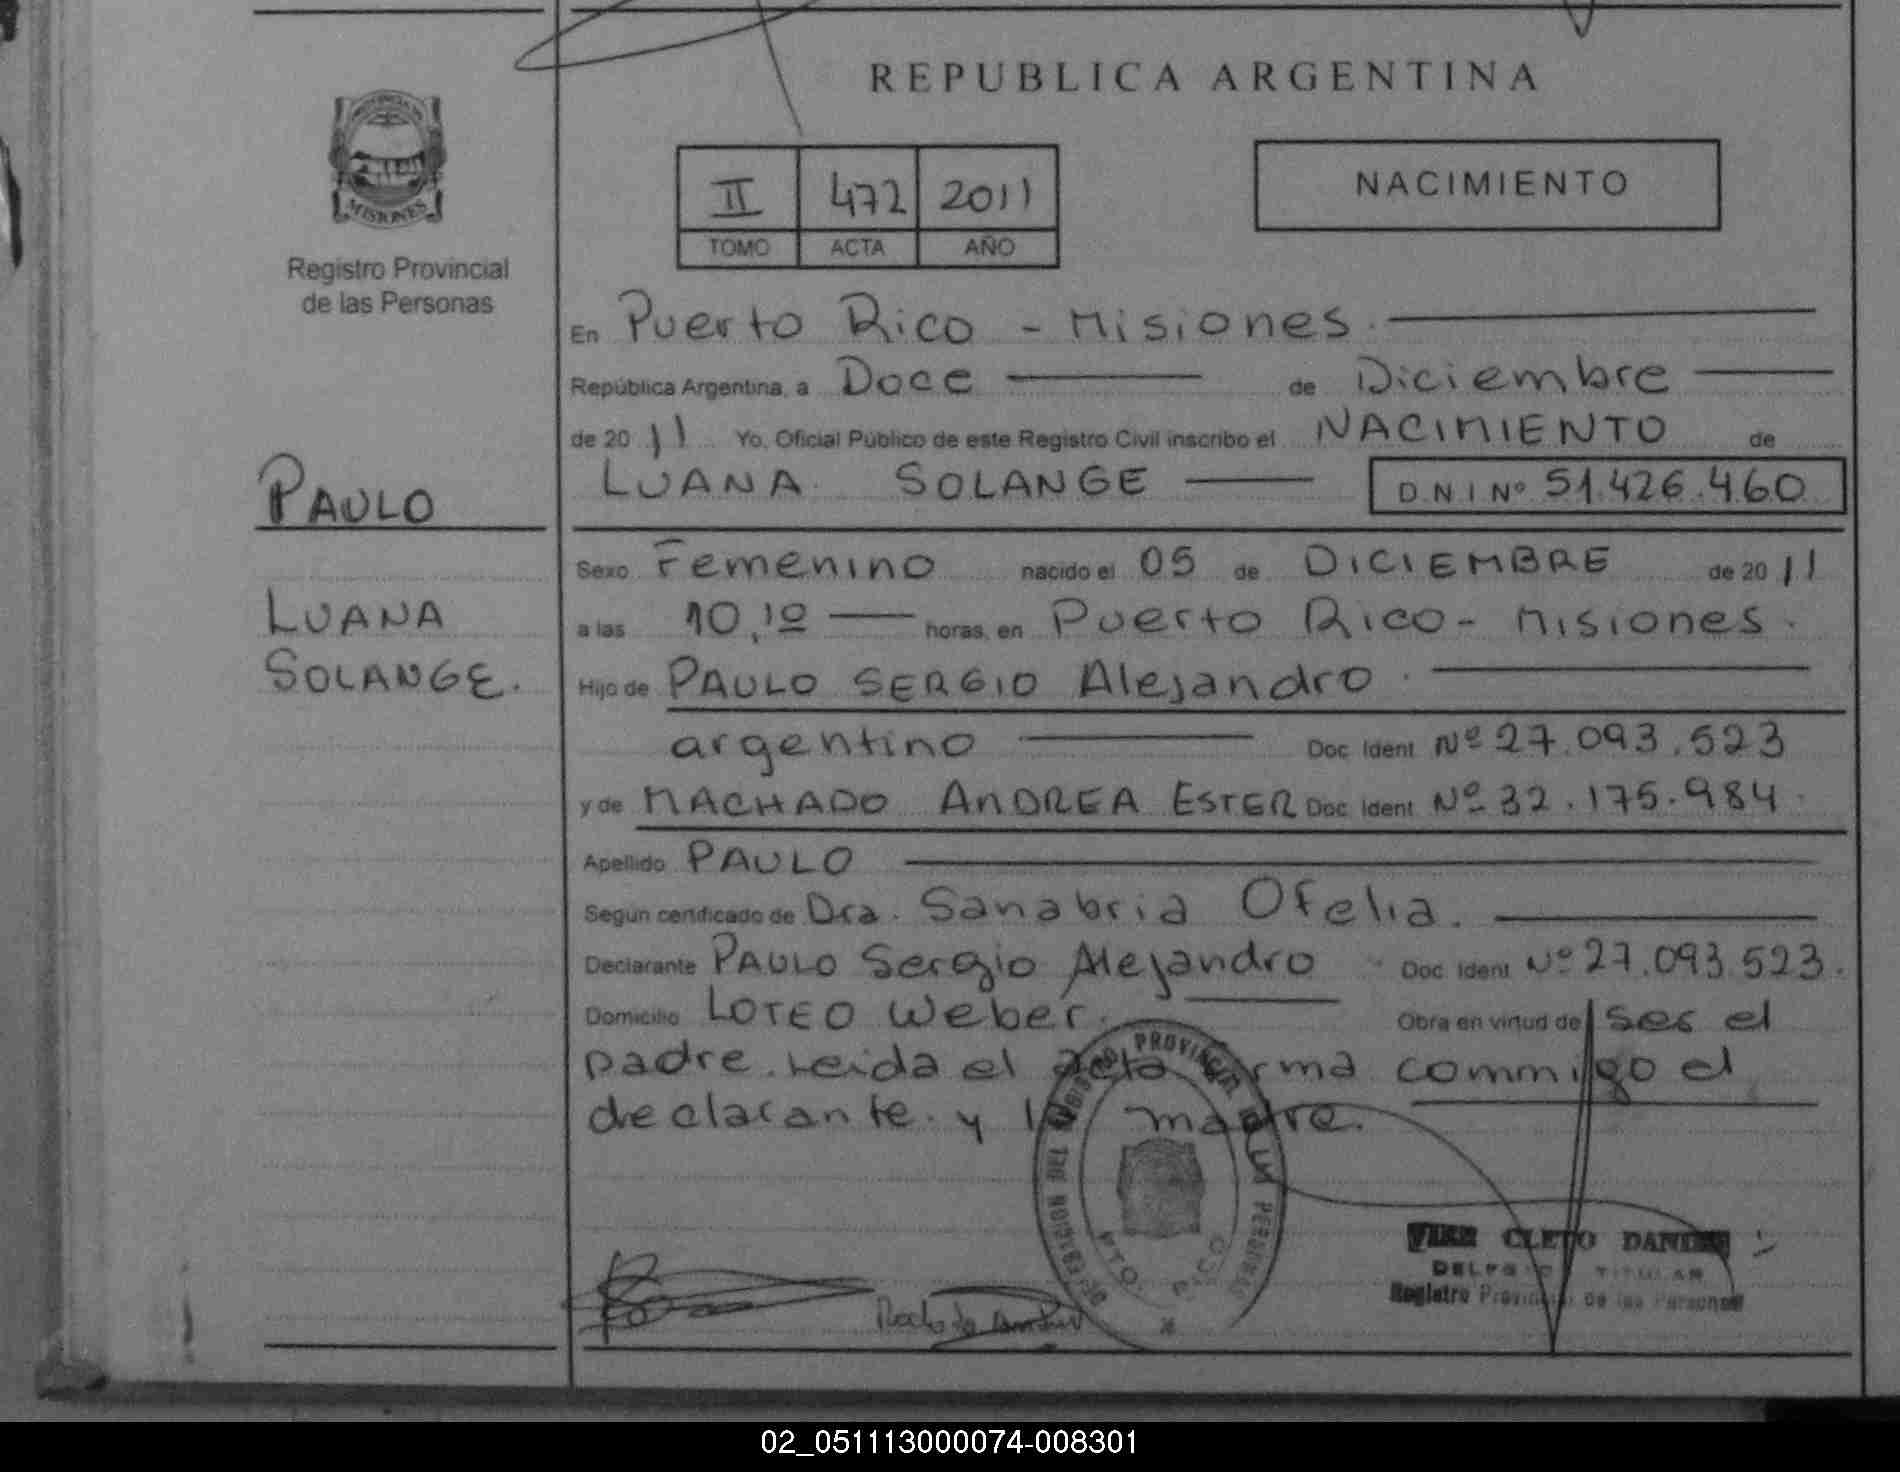 REPUBLICA ARGENTINA
PROVINCIA DE
MISIONES
Registro Provincial
de las Personas
II 472 2011
TOMO ACTA AÑO
NACIMIENTO
En Puerto Rico - Misiones.
República Argentina, a Doce de Diciembre
de 2011 Yo, Oficial Público de este Registro Civil inscribo el NACIMIENTO de
LUANA SOLANGE D.N.I Nº 51.426.460
PAULO
LUANA
SOLANGE.
Sexo Femenino nacido el 05 de DICIEMBRE de 2011
a las 10,10 horas, en Puerto Rico - Misiones.
Hijo de PAULO SERGIO Alejandro.
argentino Doc Ident Nº 27.093.523
y de MACHADO ANDREA ESTER Doc Ident Nº 32.175.984
Apellido PAULO
Según certificado de Dra. Sanabria Ofelia.
Declarante PAULO Sergio Alejandro Doc Ident Nº 27.093.523.
Domicilio LOTEO Weber. Obra en virtud de ser el
padre. Leida el acta firma commigo el
declarante y la madre.
CLETO
DELEGADO TITULAR
Registro Provincial de las Personas
02_051113000074-008301